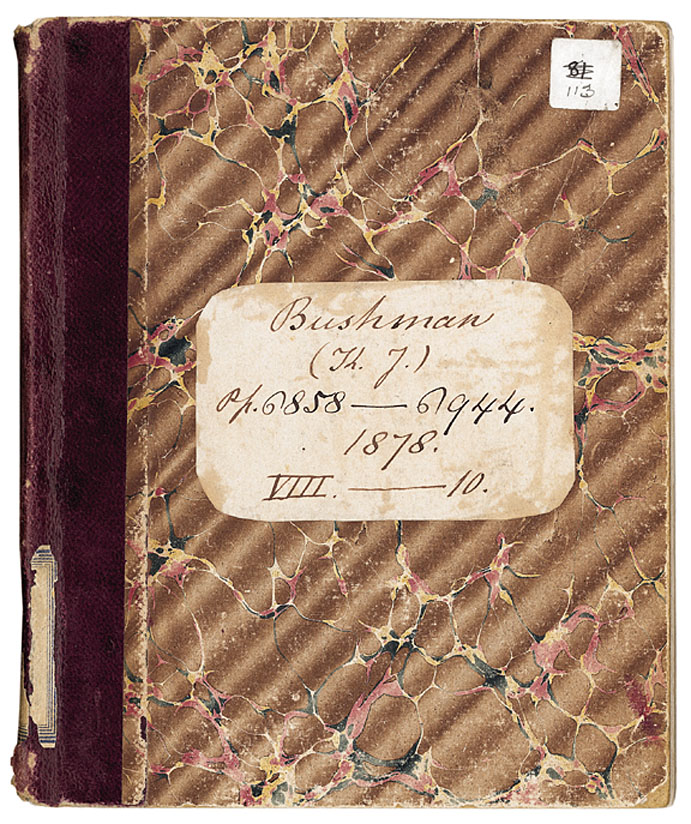 81
113
Bushman
(K. J.)
Pp. 6858 — 6944.
1878.
VIII. — 10.